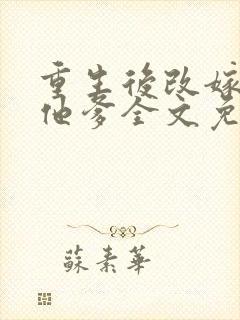 重生後改嫁
他爹全文免
蘇素華